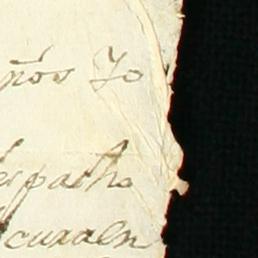 ños Yo
espacho
ocuraen